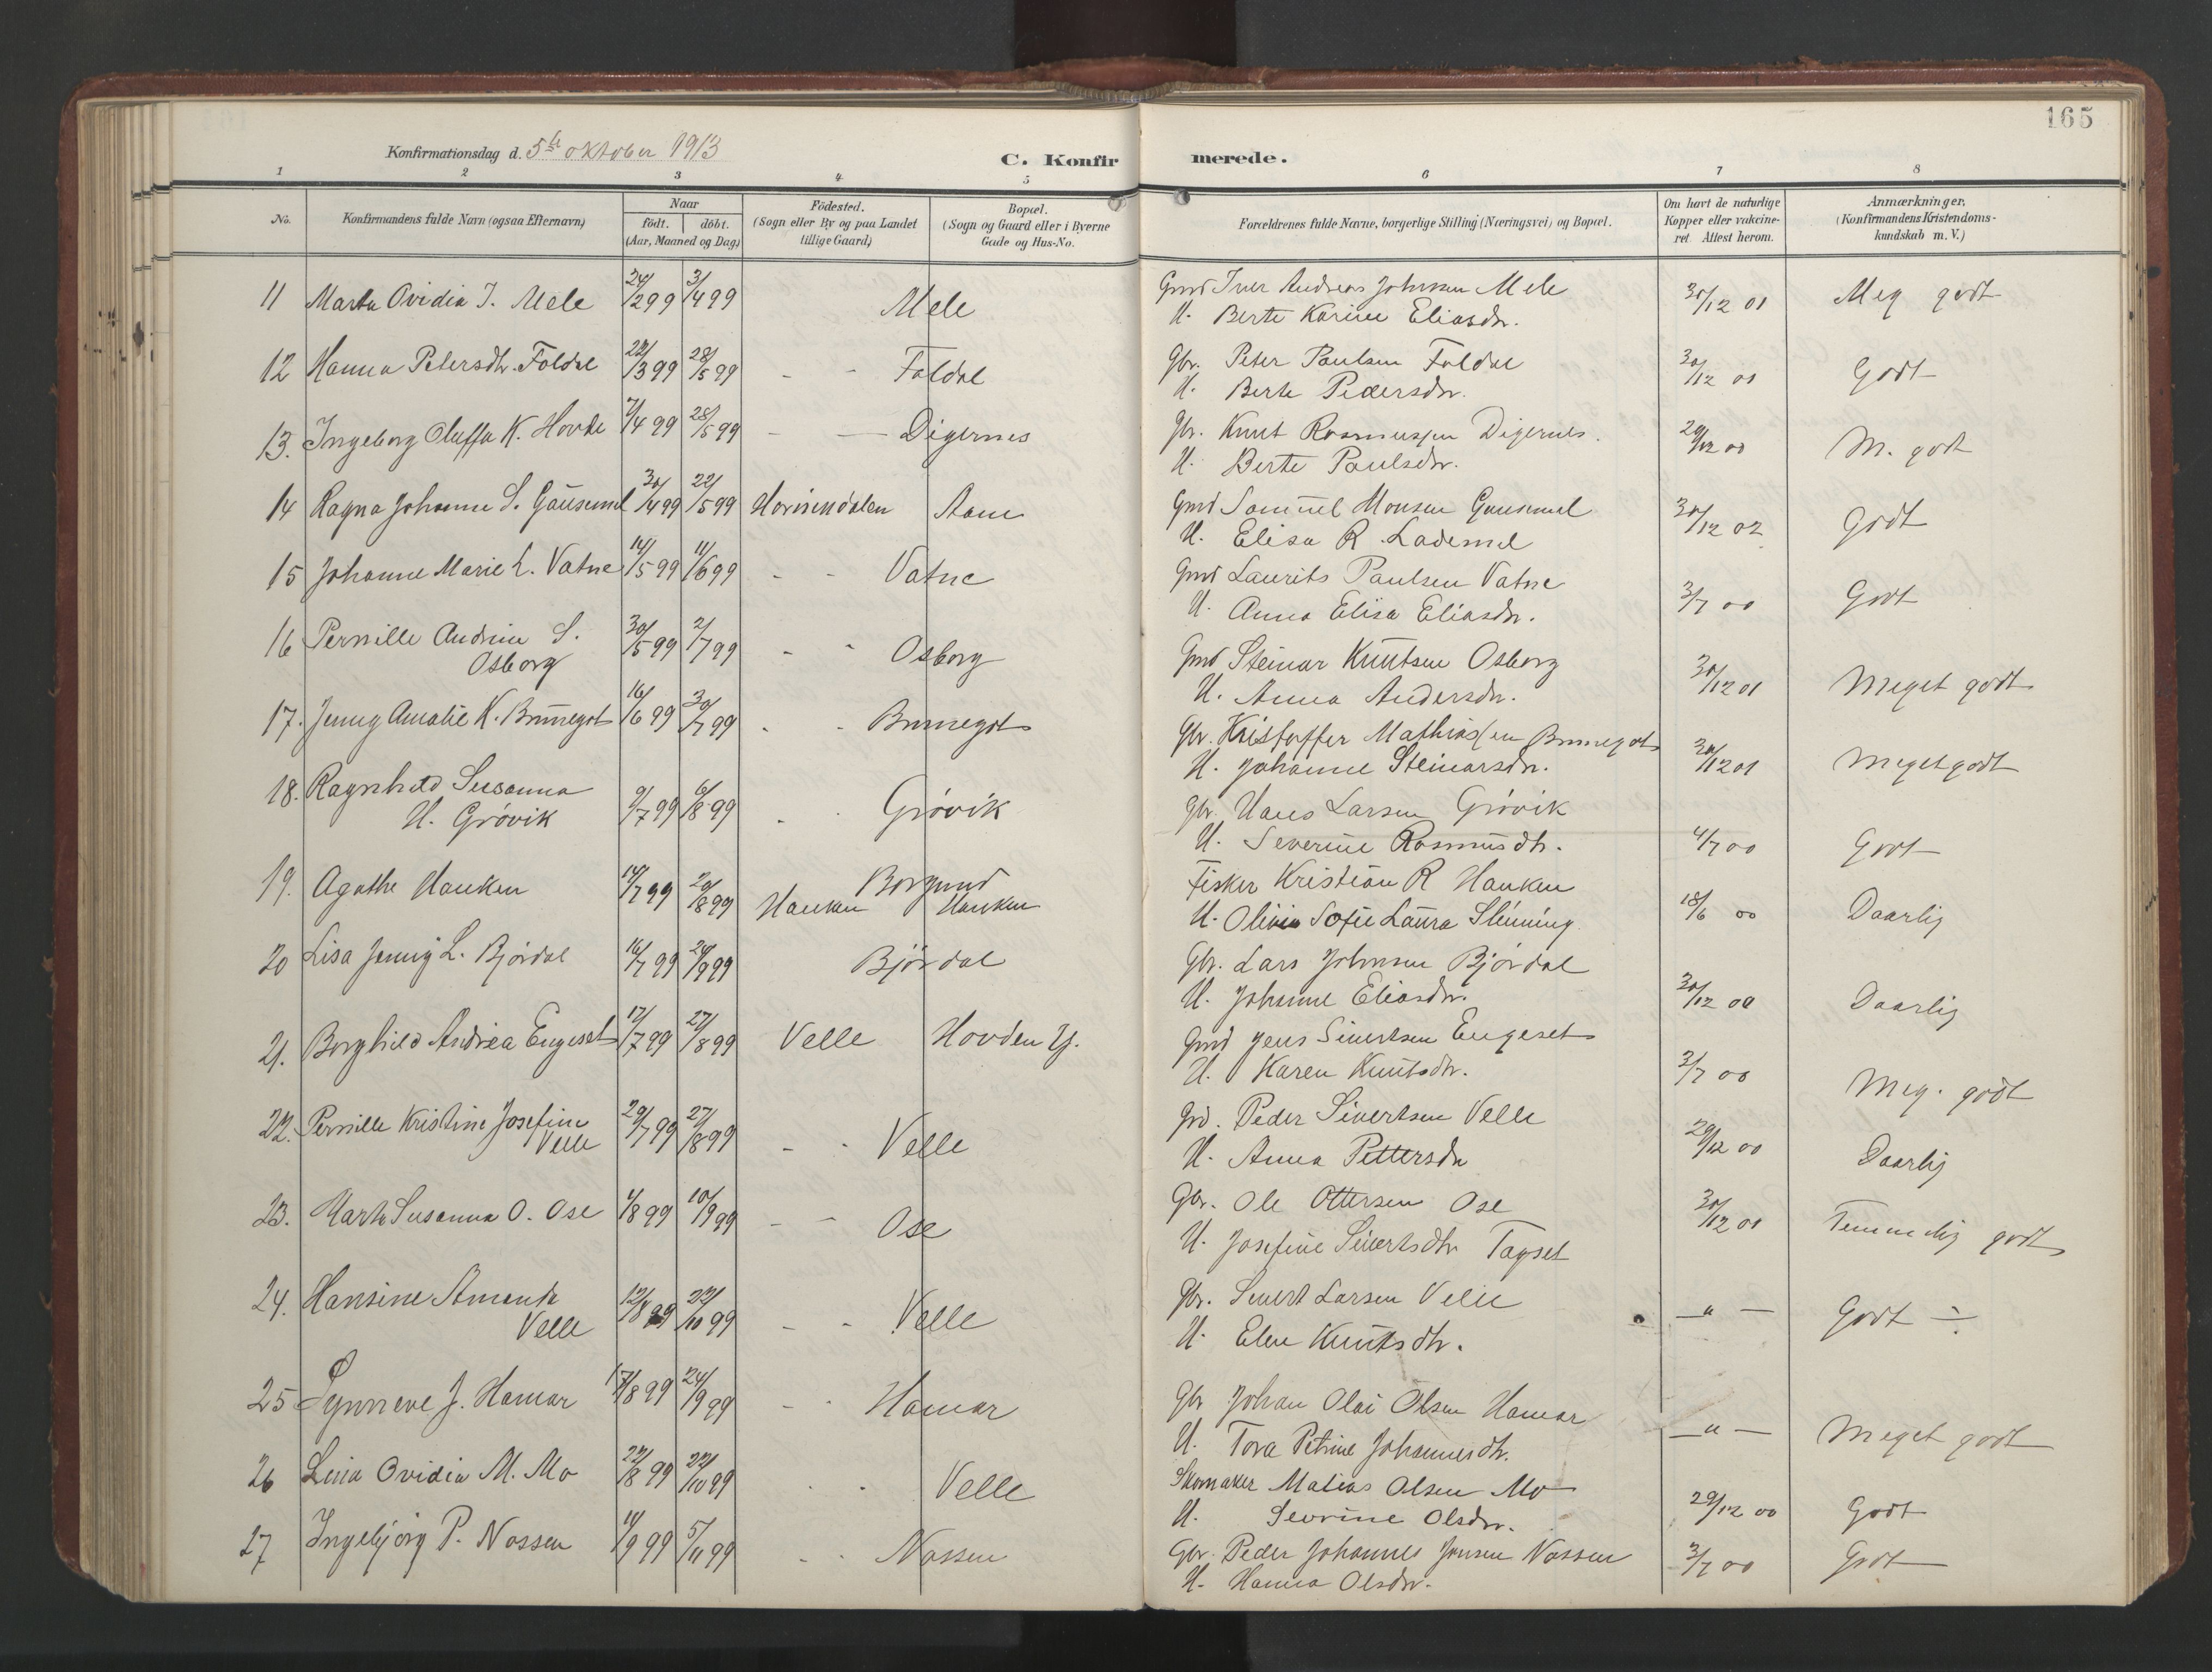 165
Konfirmationsdag d. 5te oktober 1913
C. Konfirmerede.
1 2 3 4 5 6 7 8
No. Konfirmandens fulde Navn (ogsaa Efternavn) Naar født. døbt. (Aar, Maaned og Dag) Födested. (Sogn eller By og paa Landet tillige Gaard) Bopæl. (Sogn og Gaard eller i Byerne Gade og Hus-No. Forældrenes fulde Navne, borgerlige Stilling (Næringsvei) og Bopæl. Om havt de naturlige Kopper eller vakcineret. Attest herom. Anmærkninger. (Konfirmandens Kristendomskundskab m. V.)
11 Marta Ovidia I. Mele 24/2 99 3/4 99 Mele Gmd Iver Andreas Johnsen Mele 30/12 01 Meg godt
H. Berte Karine Eliasdr.
12 Hanna Petersdtr. Foldal 22/3 99 28/5 99 - - Foldal Gbr. Peter Paulsen Foldal 30/12 01 Godt
H. Berte Pedersdr.
13. Ingeborg Oluffa K. Hovde 7/4 99 28/5 99 - — Digernes Gbr. Knut Rasmussen Digernes. 29/12 00 M. godt
H. Berte Paulsdr.
14 Ragna Johanne S. Gausemel 30/4 99 22/5 99 Aam Gmd Samuel Monsen Gausemel 30/12 02 Godt
H. Elisa R. Lademel
15 Johanne Marie L. Vatne 14/5 99 11/6 99 - - Vatne Gmd Laurits Paulsen Vatne 3/7 00 Godt
H. Anna Elisa Eliasdr.
16 Pernille Andrine S. Osborg 30/5 99 2/7 99 - - Osborg Gmd Steinar Knutsen Osborg 30/12 01 Meget godt
H. Anna Andersdr.
17. Jenny Amalie K. Brunegot 16/6 99 30/7 99 - - Brunegot Gbr. Kristoffer Mathiassen Brunegot 30/12 01 Meget godt
H. Johanne Steinarsdr.
18. Ragnhild Susanna H. Grøvik 9/7 99 6/8 99 - - Grøvik Gbr. Hans Larsen Grøvik 4/7 00 Godt
H. Severine Rasmusdtr.
19. Agathe Hanken 14/7 99 20/8 99 Borgund Hanken Hanken Fisker Kristian R Hanken 18/6 00 Daarlig
H. Olivia Sofie Laura Slinning.
20 Lisa Jenny L. Bjørdal 16/7 99 24/9 99 Bjørdal Gbr. Lars Johnsen Bjørdal 30/12 00 Daarlig
H. Johanne Eliasdr.
21. Borghild Andrea Engeset 17/7 99 27/8 99 Velle Hovden Y. Gmd Jens Sivertsen Engeset 3/7 00 Meg. godt
H. Karen Knutsdtr.
22. Pernille Kristine Josefine Velle 29/7 99 27/8 99 - - Velle Grd. Peder Sivertsen Velle 29/12 00 Daarlig
H. Anna Pettersdr
23. Marta Susanna O. Ose 4/8 99 10/9 99 - - Ose Gbr. Ole Ottersen Ose 30/12 01 Temmelig godt
H. Josefine Sivertsdtr Tagset
24. Hansine Amanda Velle 12/8 99 22/10 99 - - Velle Gbr. Sivert Larsen Velle — " — Godt ÷
H. Elen Knutsdtr.
25 Synneve J. Hamar 17/8 99 24/9 99 - - Hamar Gbr Johan Olai Olsen Hamar — " — Meget godt
H. Tora Petrine Johannesdtr.
26 Lina Ovidia M. Mo 22/8 99 22/10 99 - - Velle Skomaker Matias Olsen Mo 29/12 00 Godt
H. Sevrine Olsdr.
27 Ingebjørg P. Nossen 11/9 99 5/11 99 - - Nossen Gbr. Peder Johannes Jonsen Nossen 3/7 00 Godt
H. Hanna Olsdr.